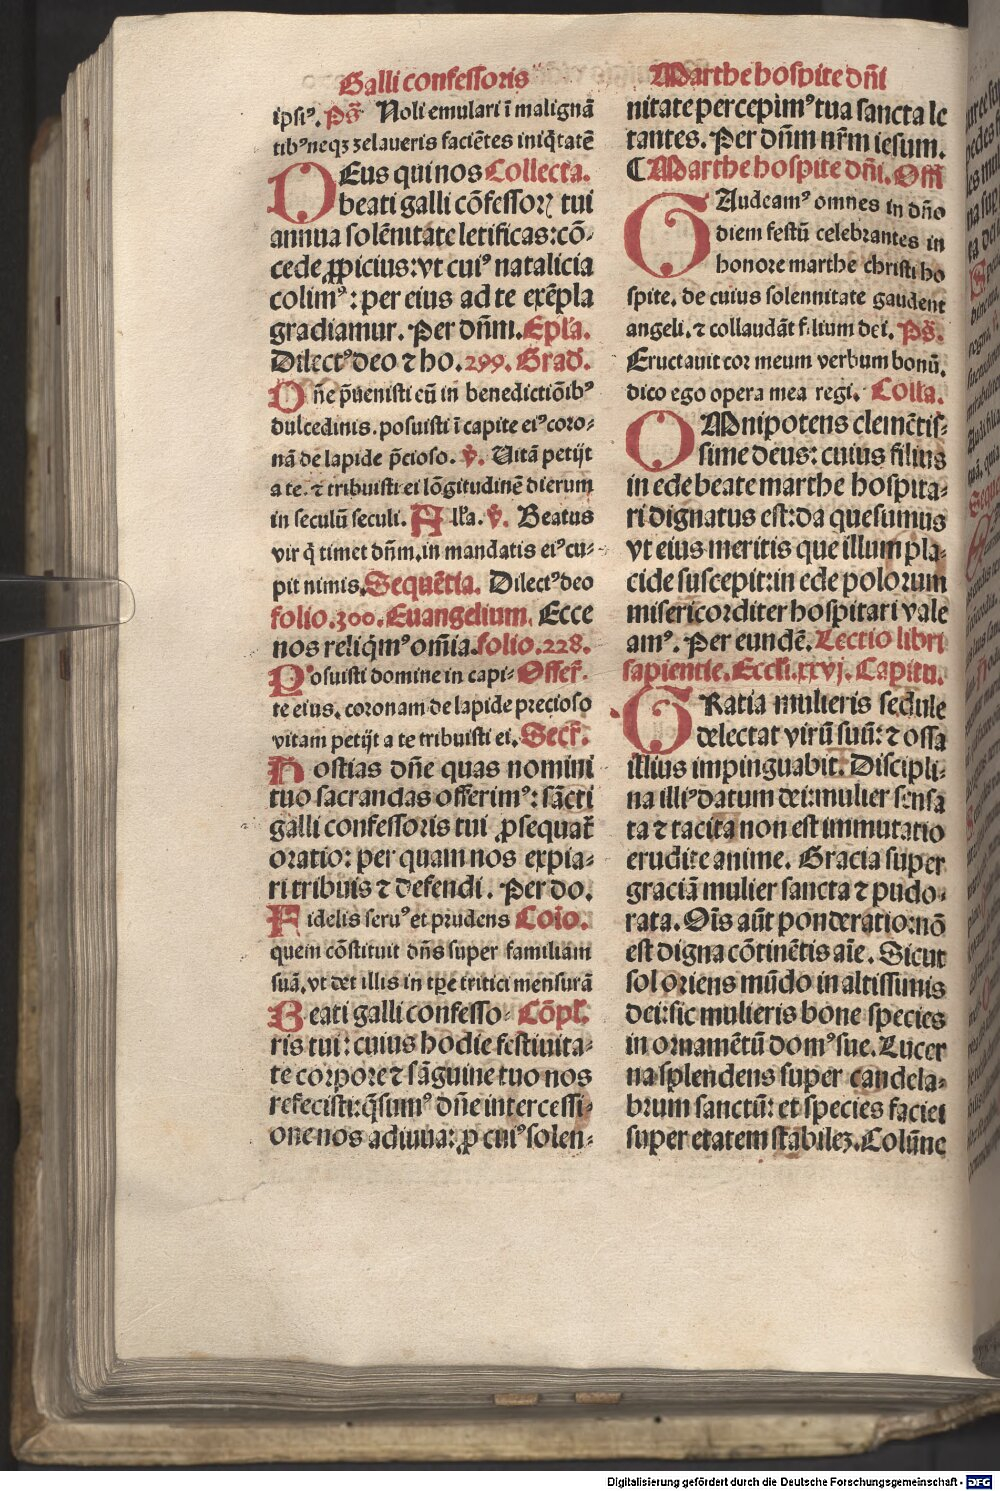 Galli confessoris
ipsiꝰ. Ps̄. Noli emulari ī malignā
tibꝰ neqꝫ zelaueris faciētes iniq̄tatē
DEus qui nos Collecta.
beati galli cōfessoꝝ tui
annua solēnitate letificas: cō-
cede ꝓpicius: vt cuiꝰ natalicia
colimꝰ: per eius ad te exēpla
gradiamur. Per dñm. Epl'a.
Dilectꝰ deo ⁊ ho. 299. Grad'.
Dñe p̄uenisti eū in benedictiōibꝰ
dulcedinis. posuisti ī capite eiꝰ coro-
nā de lapide p̄cioso. ℣. Uitā petijt
a te. ⁊ tribuisti ei lōgitudinē dierum
in seculū seculi. All'a. ℣. Beatus
vir q̄ timet dñm. in mandatis eiꝰ cu-
pit nimis. Sequētia. Dilectꝰ deo
folio. 300. Euangelium. Ecce
nos reliq̄mꝰ om̄ia. folio. 228.
Posuisti domine in capi- Offer̄.
te eius. coronam de lapide precioso
vitam petijt a te tribuisti ei. Secr̄.
Hostias dñe quas nomini
tuo sacrandas offerimꝰ: sācti
galli confessoris tui ꝓsequat̄
oratio: per quam nos expia-
ri tribuis ⁊ defendi. Per do.
Fidelis seruꝰ et prudens Cōio.
quem cōstituit dñs super familiam
suā. vt det illis in tp̄e tritici mensurā
Beati galli confesso- Cōpl'.
ris tui: cuius hodie festiuita-
te corpore ⁊ sāguine tuo nos
refecisti: q̄sumꝰ dñe intercessi-
one nos adiuua: ꝓ cuiꝰ solen-
Marthe hospite dñi
nitate percepimꝰ tua sancta le
tantes. Per dñm nr̄m iesum.
C Marthe hospite dñi. Off̄
GAudeamꝰ omnes in dño
diem festū celebrantes in
honore marthe christi ho
spite. de cuius solennitate gaudent
angeli. ⁊ collaudāt filium dei. Ps̄.
Eructauit cor meum verbum bonū.
dico ego opera mea regi. Colla.
OMnipotens clemētis-
sime deus: cuius filius
in ede beate marthe hospita-
ri dignatus est: da quesumus
vt eius meritis que illum pla-
cide suscepit: in ede polorum
misericorditer hospitari vale
amꝰ. Per eundē. Lectio libri
sapientie. Eccli. xxvj. Capitu.
GRatia mulieris sedule
delectat virū suū: ⁊ ossa
illius impinguabit. Discipli-
na illiꝰ datum dei: mulier sensa
ta ⁊ tacita non est immutatio
erudite anime. Gracia super
graciā mulier sancta ⁊ pudo-
rata. Oīs aūt ponderatio: nō
est digna cōtinētis aīe. Sicut
sol oriens mūdo in altissimis
dei: sic mulieris bone species
in ornamētū domꝰ sue. Lucer
na splendens super candela-
brum sanctū: et species faciei
super etatem stabileꝫ. Colūne
Digitalisierung gefördert durch die Deutsche Forschungsgemeinschaft - DFG